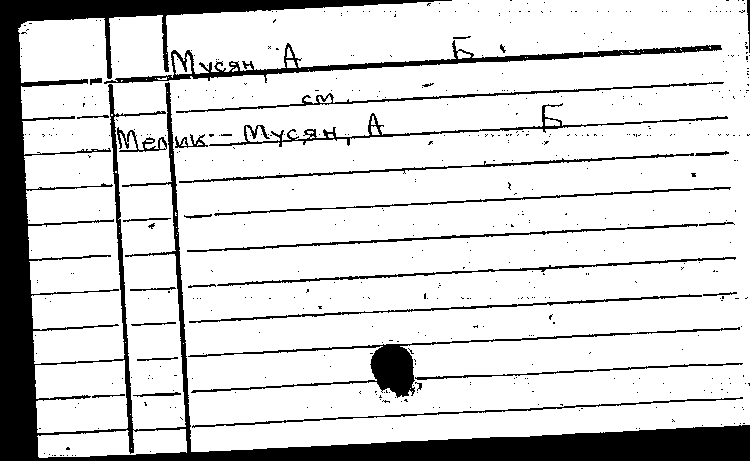 Мусян, А Б.
см.
Мелик-Мусян, А Б